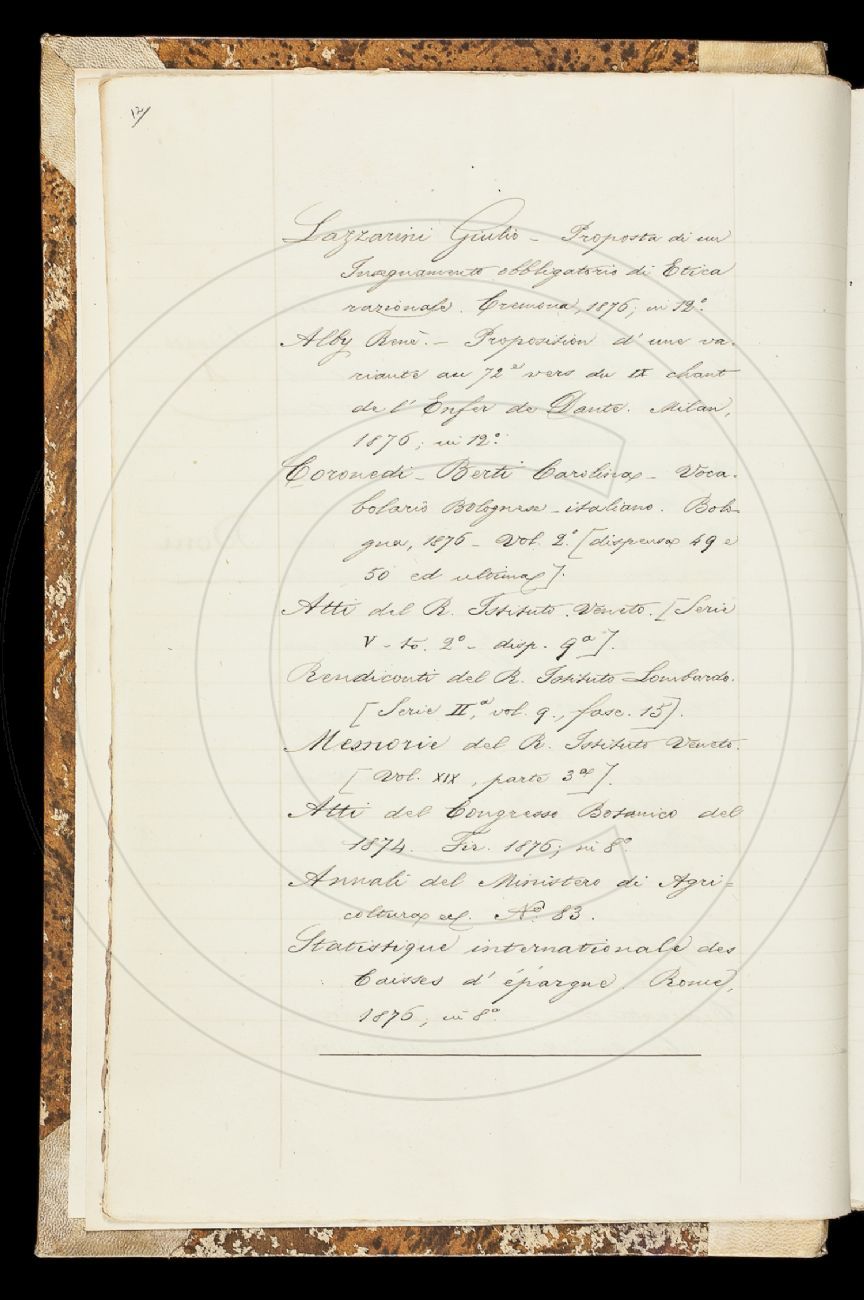 12
Lazzarini Giulio - Proposta di un
Insegnamento obbligatorio di Etica
razionale. Cremona, 1876; in 12.°
Alby René. - Proposition d'une va-
riante au 72e vers du IX chant
de l'Enfer de Dante. Milan,
1876; in 12.°
Coronedi-Berti Carolina - Voca-
bolario Bolognese-italiano. Bolo-
gna, 1876 - Vol. 2.° [dispensa 49 e
50 ed ultima].
Atti del R. Istituto Veneto. [Serie
V - to. 2° - disp. 9a].
Rendiconti del R. Istituto Lombardo.
[Serie II,a vol. 9., fasc. 15].
Memorie del R. Istituto Veneto.
[Vol. XIX, parte 3a].
Atti del Congresso Botanico del
1874. Fir. 1876; in 8°.
Annali del Ministero di Agri=
coltura ec. N.° 83.
Statistique internationale des
Caisses d'épargne. Rome,
1876; in 8°.